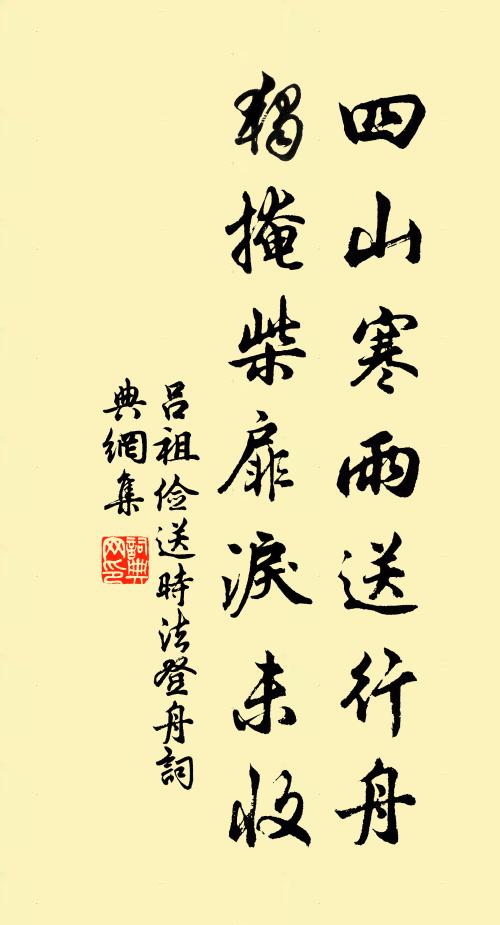 四山寒雨送行舟
獨掩柴扉淚未收
呂祖儉送時法登舟詞
典網集
詞典
网印